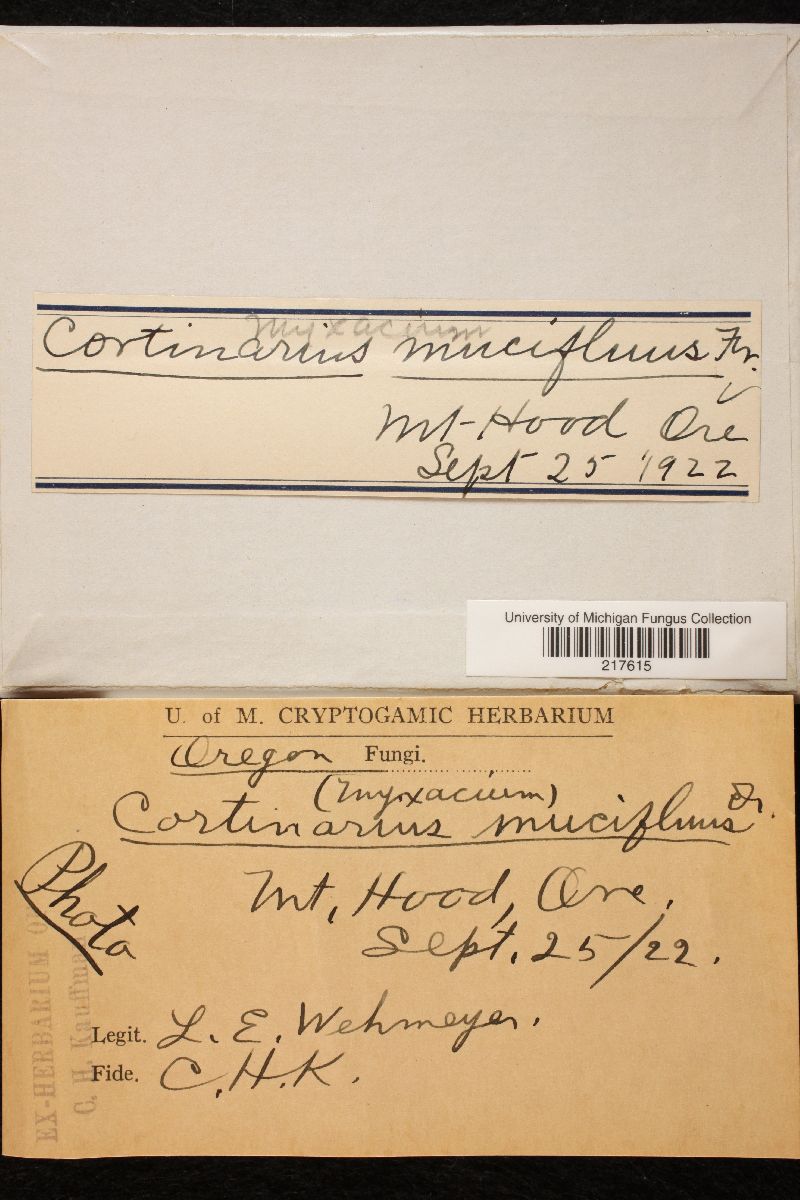 Myxacium
Cortinarius mucifluus Fr.
Mt-Hood Ore
Sept 25 1922
University of Michigan Fungus Collection
217615
U. of M. CRYPTOGAMIC HERBARIUM
Oregon Fungi.
(Myxacium)
Cortinarius mucifluus Fr.
Photo
Mt, Hood, Ore.
Sept. 25/22.
Legit. L. E. Wehmeyer.
Fide. C.H.K.
EX-HERBARIUM OF
C. H. Kauffman